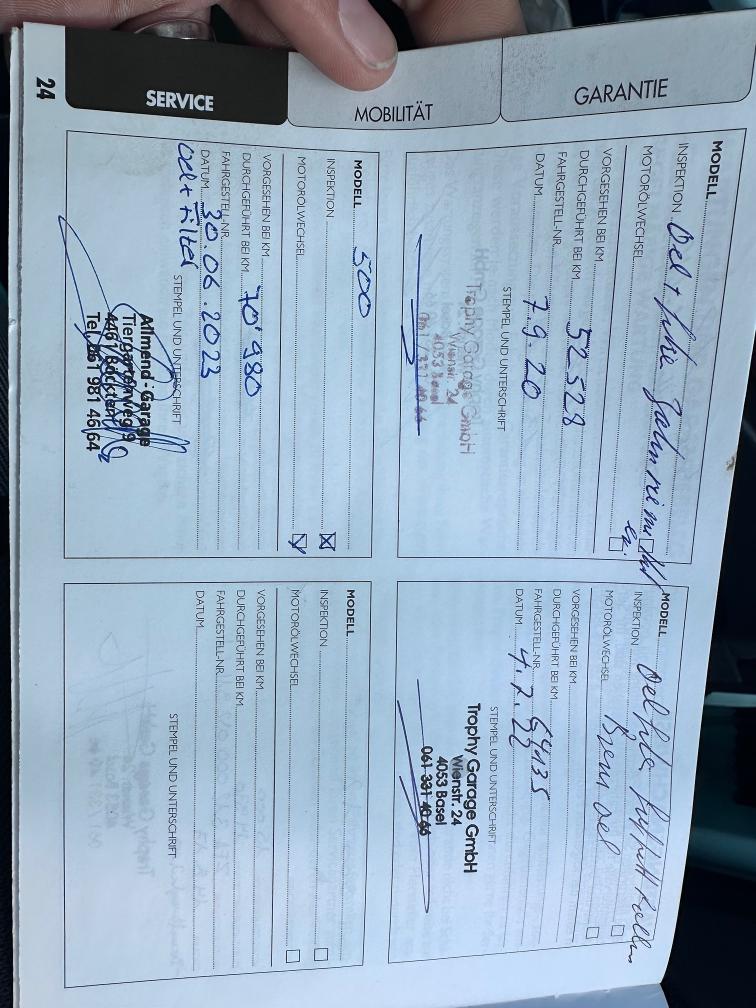 GARANTIE
MOBILITÄT
SERVICE
24
MODELL
INSPEKTION Oel + filter Zahnriemen
MOTORÖLWECHSEL
VORGESEHEN BEI KM
DURCHGEFÜHRT BEI KM 52528
FAHRGESTELL-NR.
DATUM 7.9.20
STEMPEL UND UNTERSCHRIFT
Trophy Garage GmbH
Wienstr. 24
4053 Basel
061 / 331 40 66
MODELL
INSPEKTION Oel filter
MOTORÖLWECHSEL Brems oel
VORGESEHEN BEI KM
DURCHGEFÜHRT BEI KM
FAHRGESTELL-NR. 64135
DATUM 4.7.22
STEMPEL UND UNTERSCHRIFT
Trophy Garage GmbH
Wienstr. 24
4053 Basel
061 331 40 66
MODELL 500
INSPEKTION
MOTORÖLWECHSEL
VORGESEHEN BEI KM
DURCHGEFÜHRT BEI KM 70'980
FAHRGESTELL-NR.
DATUM 30.06.2023
Oel + Filter
STEMPEL UND UNTERSCHRIFT
Allmend-Garage
Tiergartenweg 9
Tel. 061 981 46 64
MODELL
INSPEKTION
MOTORÖLWECHSEL
VORGESEHEN BEI KM
DURCHGEFÜHRT BEI KM
FAHRGESTELL-NR.
DATUM
STEMPEL UND UNTERSCHRIFT